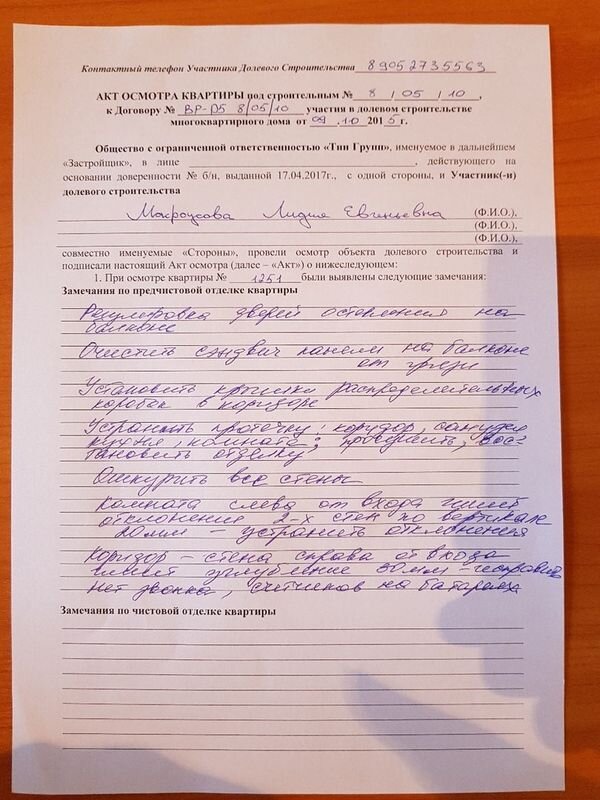 Контактный телефон Участника Долевого Строительства 89052735563
АКТ ОСМОТРА КВАРТИРЫ под строительным № 8 / 05 / 10 ,
к Договору № ВР-Д5 8/05/10 участия в долевом строительстве
многоквартирного дома от 09 .10 2015 г.
Общество с ограниченной ответственностью «Тин Групп», именуемое в дальнейшем
«Застройщик», в лице , действующего на
основании доверенности № б/н, выданной 17.04.2017г., с одной стороны, и Участник(-и)
долевого строительства
Лидия Евгеньевна (Ф.И.О.),
(Ф.И.О.),
(Ф.И.О.),
совместно именуемые «Стороны», провели осмотр объекта долевого строительства и
подписали настоящий Акт осмотра (далее – «Акт») о нижеследующем:
1. При осмотре квартиры № 1251 были выявлены следующие замечания:
Замечания по предчистовой отделке квартиры
Регулировка дверей остекления на
балконе
Очистить сэндвич панели на балконе
от грязи
Установить крышки распределительных
коробок в коридоре
Устранить протечку: коридор, санузел
кухня, комната; просушить, вос-
тановить отделку
Ошкурить все стены
Комната слева от входа имеет
отклонение 2-х стен по вертикале
20мм – устранить отклонения
Коридор – стена справа от входа
имеет углубление 30мм – исправить
нет звонка, счетчиков на батареях
Замечания по чистовой отделке квартиры